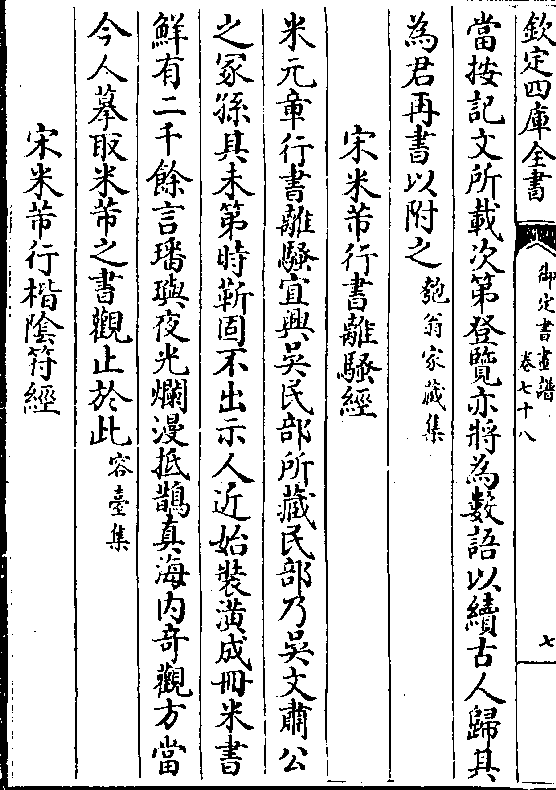 欽定四庫全書
御定書畫譜
卷七十八
七
當按記文所載次第登覽亦將為數語以續古人歸其
為君再書以附之匏翁家藏集
宋米芾行書離騷經
米元章行書離騷宜興吳民部所藏民部乃吳文肅公
之冢孫其未第時靳固不出示人近始裝潢成冊米書
鮮有二千餘言璠璵夜光爛漫抵鵲真海内奇觀方當
今人摹取米芾之書觀止於此容臺集
宋米芾行楷陰符經